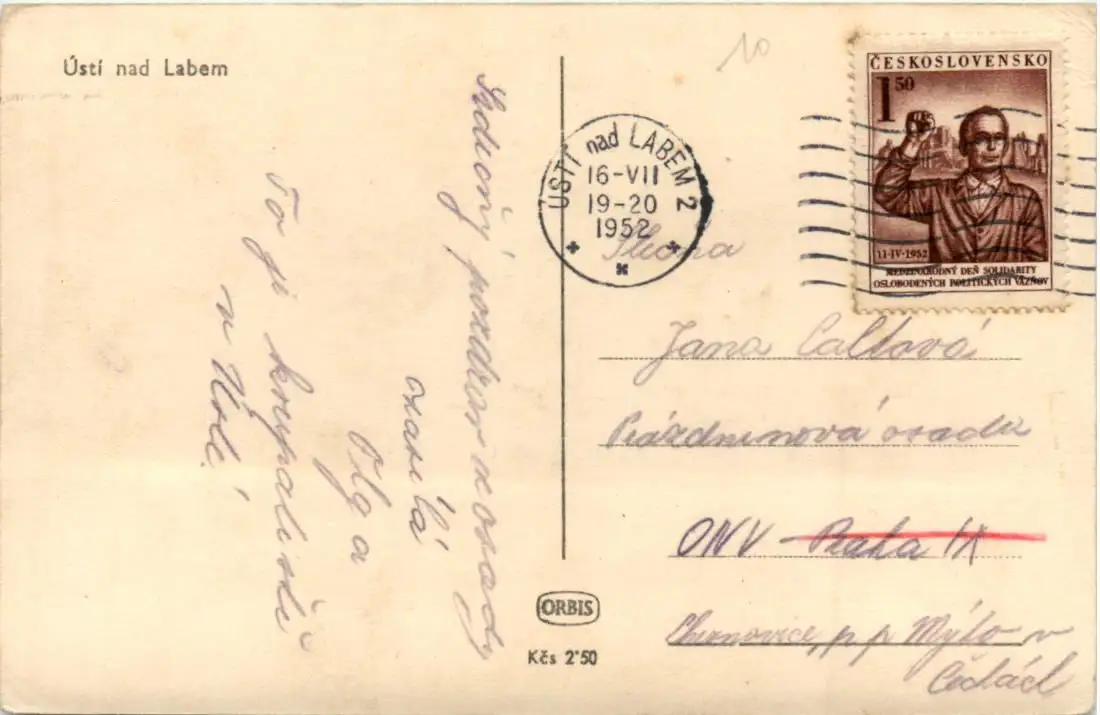 Ústí nad Labem
Srdečný pozdrav z osady
zasílá
Olga
To je koupaliště
v Ústí.
10
ÚSTÍ nad LABEM 2
16-VII
19-20
1952
ČESKOSLOVENSKO
1 50
11·IV·1952
MEDZINÁRODNÝ DEŇ SOLIDARITY
OSLOBODENÝCH POLITICKÝCH VÄZŇOV
Jana
Prázdninová osada
ONV Praha IX
p. p. Mýto v
Čechách
ORBIS
Kčs 2·50